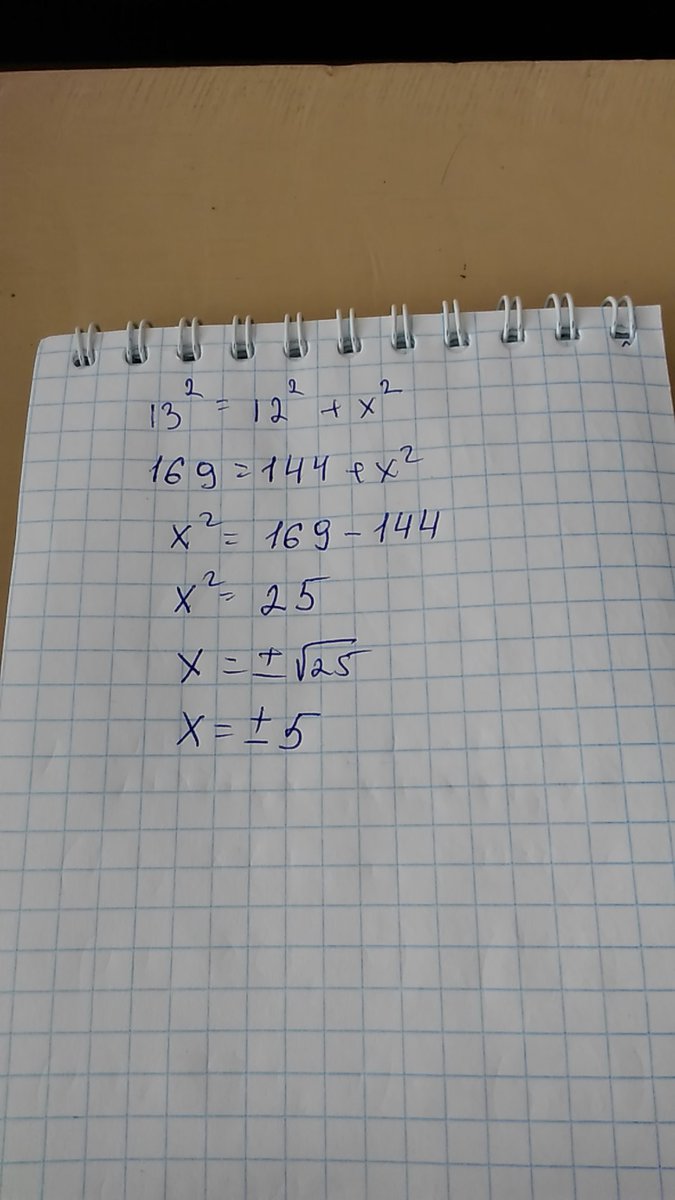 13² = 12² + x²
169 = 144 + x²
x² = 169 - 144
x² = 25
x = ±√25
x = ±5